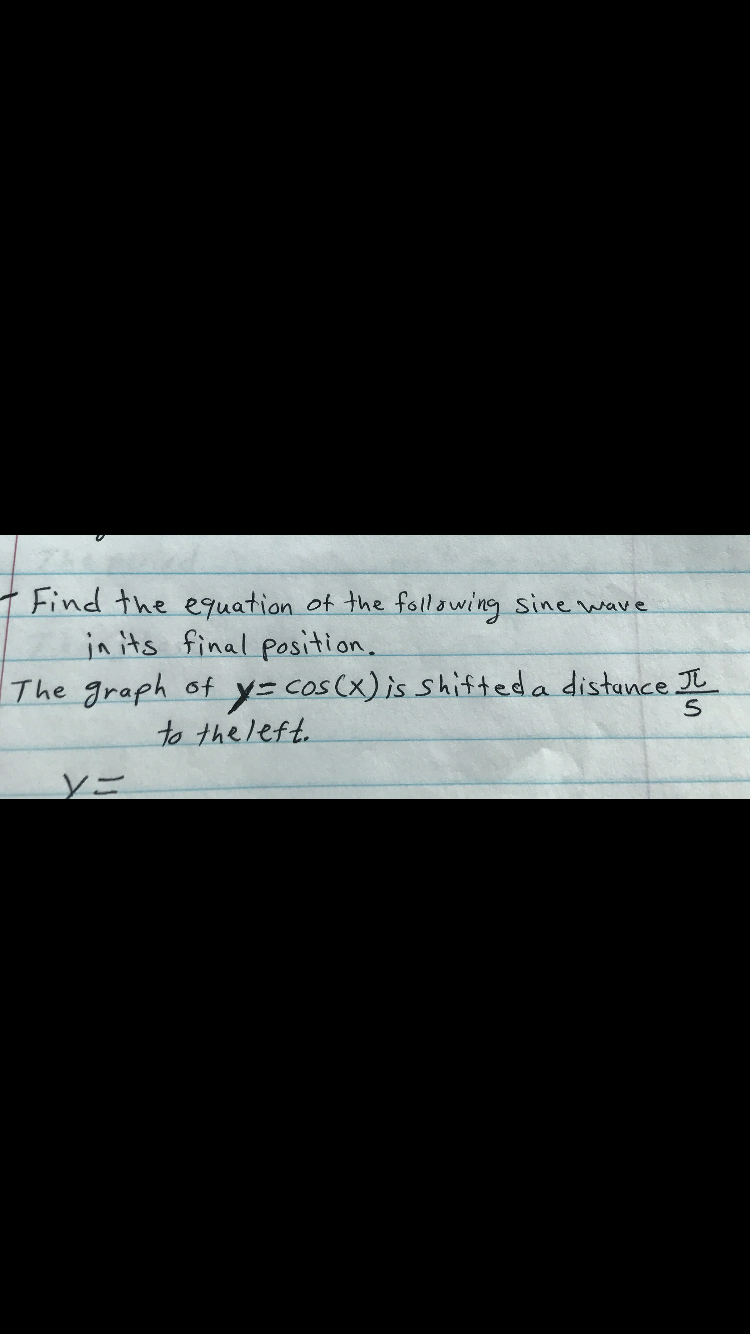 - Find the equation of the following sine wave
in its final position.
The graph of y=cos(x) is shifted a distance π/5
to the left.
y=